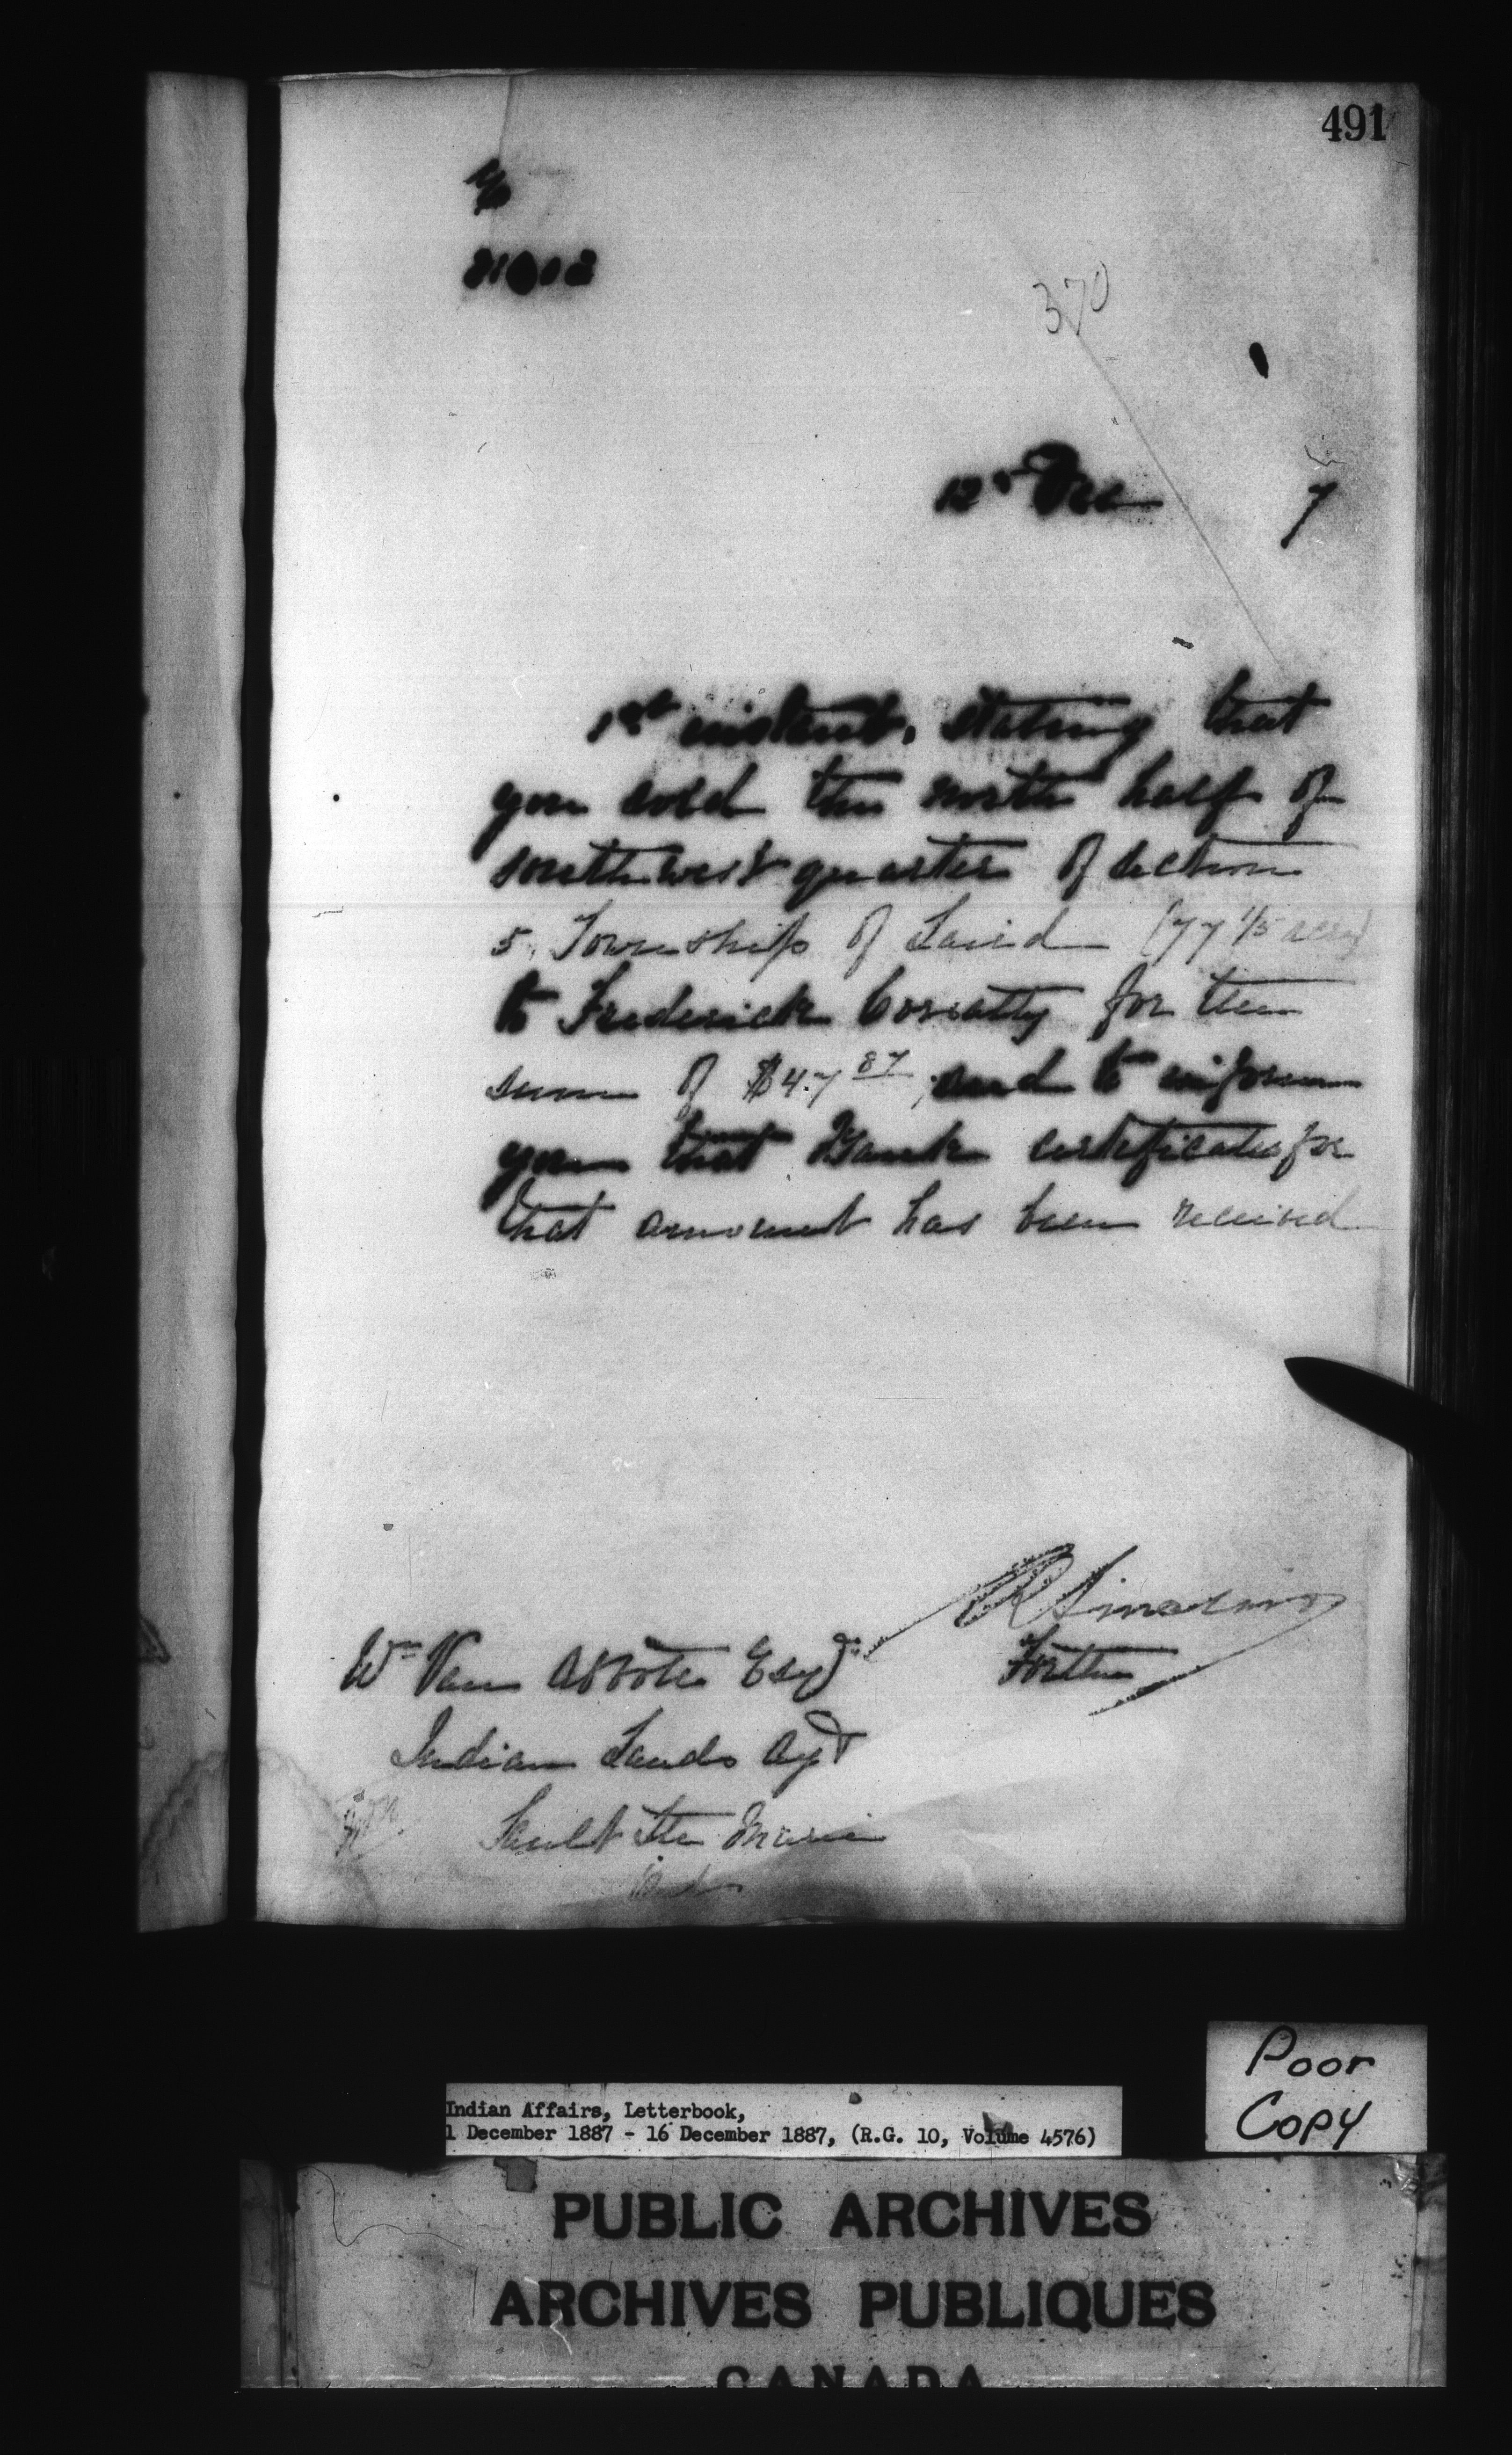 491
370
12th Dec 7
1st instant, stating that
you sold the north half of
south west quarter of section
5, Township of Laird (77 1/5 acres)
to Frederick for the
sum of $47 87, and to inform
you that Bank certificate for
that amount has been received
R Sinclair
For the
Wm Van Abbott Esqr
Indian Lands Agt
Sault Ste Marie
Ont
Poor
Copy
Indian Affairs, Letterbook,
1 December 1887 - 16 December 1887, (R.G. 10, Volume 4576)
PUBLIC ARCHIVES
ARCHIVES PUBLIQUES
CANADA